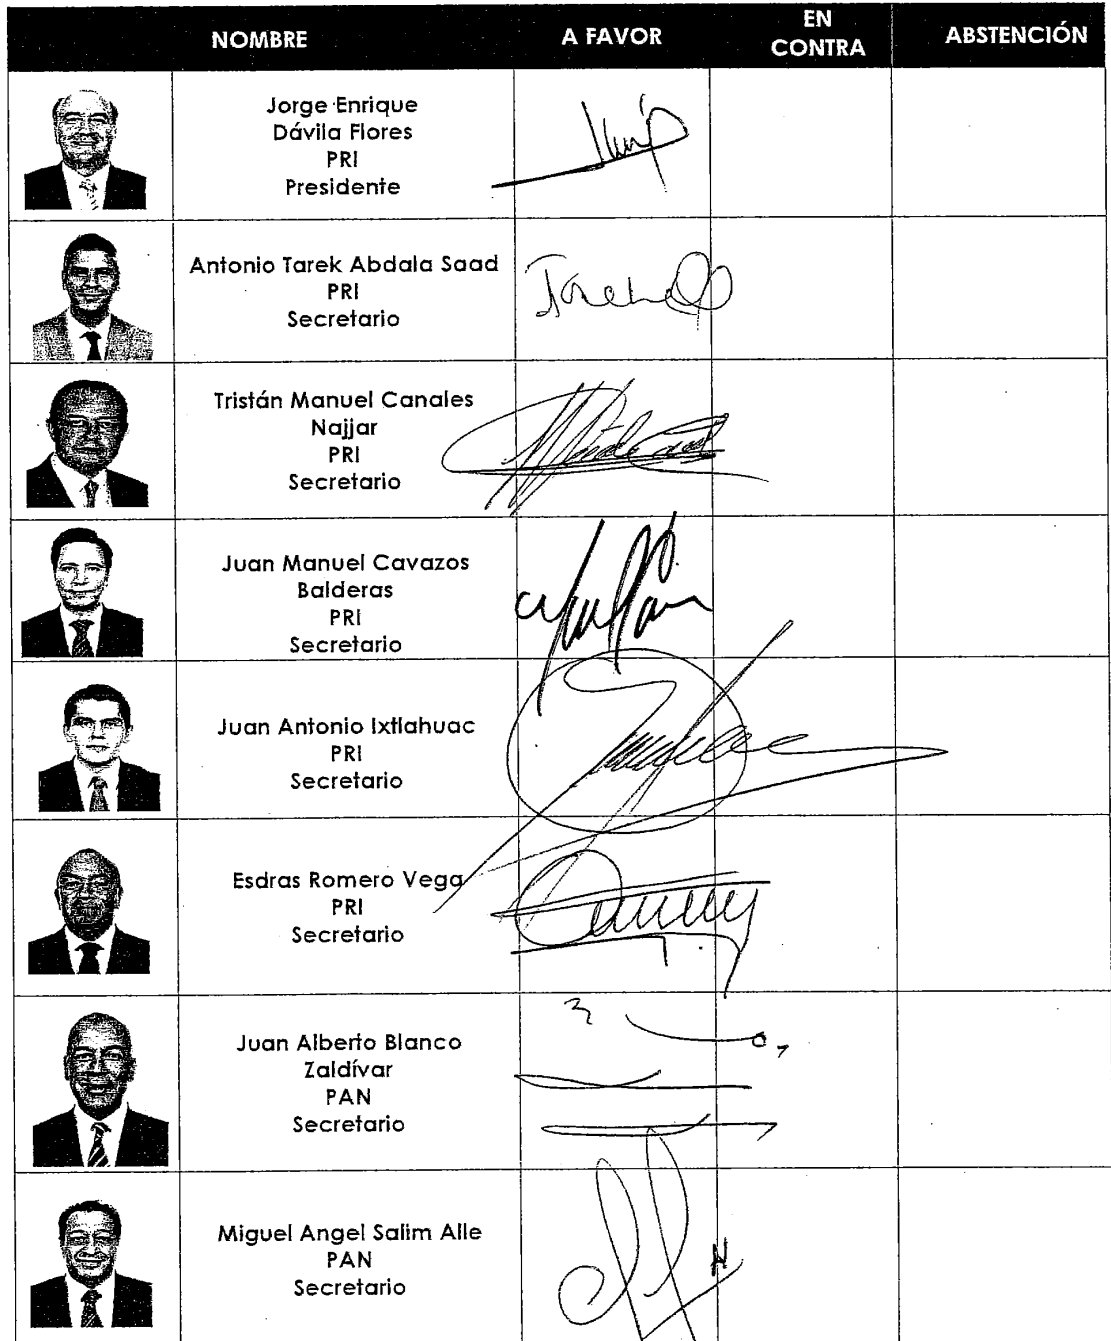 NOMBRE A FAVOR EN CONTRA ABSTENCIÓN
Jorge Enrique
Dávila Flores
PRI
Presidente
Antonio Tarek Abdala Saad
PRI
Secretario
Tristán Manuel Canales
Najjar
PRI
Secretario
Juan Manuel Cavazos
Balderas
PRI
Secretario
Juan Antonio Ixtlahuac
PRI
Secretario
Esdras Romero Vega
PRI
Secretario
Juan Alberto Blanco
Zaldívar
PAN
Secretario
Miguel Angel Salim Alle
PAN
Secretario